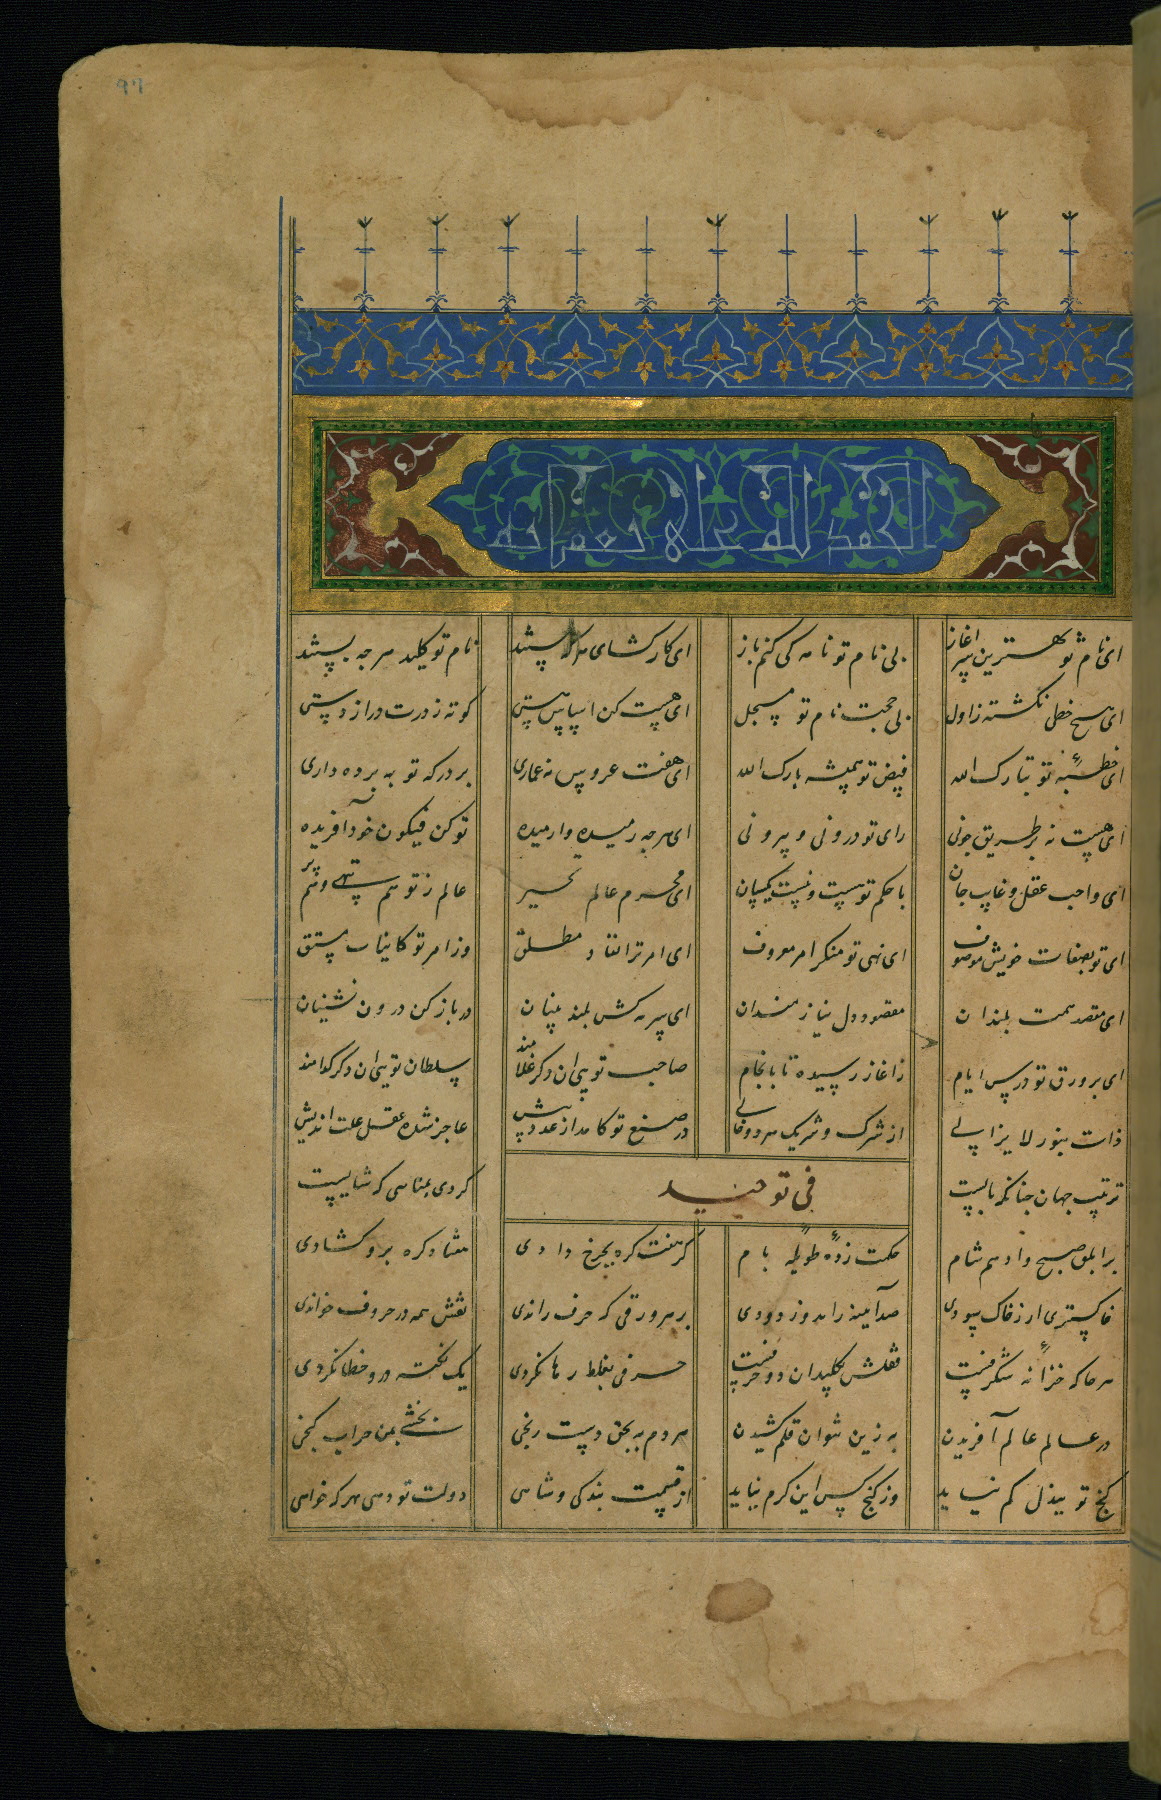 الحمد لله علی نعمائه
ای نام تو بهترین سر اغاز بی نام تو نامه کی کنم باز ای کارکشای هرکه هستند نام تو کلید هرجه بستند
ای هیچ خطی نکشته ز اول بی حجت نام تو مسجل ای هست کن اساس هستی کوته ز درت دراز دستی
ای خطبهٔ تو تبارک الله فیض تو همیشه بارک الله ای هفت عروس نه عماری بر درکه تو به برده داری
ای هست نه بر طریق جونی رای تو درونی و برونی ای هرجه رمیده وارمیده تو کن فیکون خود آفریده
ای واجب عقل و غایب جان با حکم تو هست و نیست یکسان ای محرم عالم تحیر عالم ز تو هم تهی و هم پر
ای تو بصفات خویش موصوف ای نهی تو منکر امر معروف ای امر ترا نفاد مطلق وز امر تو کاینات مشتق
ای مقصد همت بلندان مقصود دل نیازمندان ای سرمه کش بلند بینان در باز کن درون نشینان
ای بر ورق تو درس ایام ز اغاز رسیده تا بانجام صاحب تویی ان دکر غلامند سلطان تویی ان دکر کدامند
ذات بنور لایزالی از شرک و شریک هر دو خالی در صنع تو کامد از عدد بیش عاجز شده عقل علت اندیش
ترتیب جهان جنانکه بایست کردی بمثابی که شایست
فی توحید
بر ابلق صبح و ادهم شام حکمت زدهٔ طویلهٔ بام کر هفت کره بجرخ دادی هفتاد کره برو کشادی
خاکستری ار ز خاک سودی صد آیینه را بدو زدودی بر هر ورقی که حرف راندی نقش همه در حروف خواندی
هرجا که خزانهٔ شکرفست قفلش بکلید ان دو حرفست حرفی بغلط رها نکردی یک نکته درو خطا نکردی
در عالم عالم آفریدن به زین نتوان قلم کشیدن هردم به بحق دست رنجی بخشی بمن خراب کنجی
کنج تو ببذل کم نیاید وز کنج کس این کرم نیاید از قسمت بندکی و شاهی دولت تو دهی بهرکه خواهی